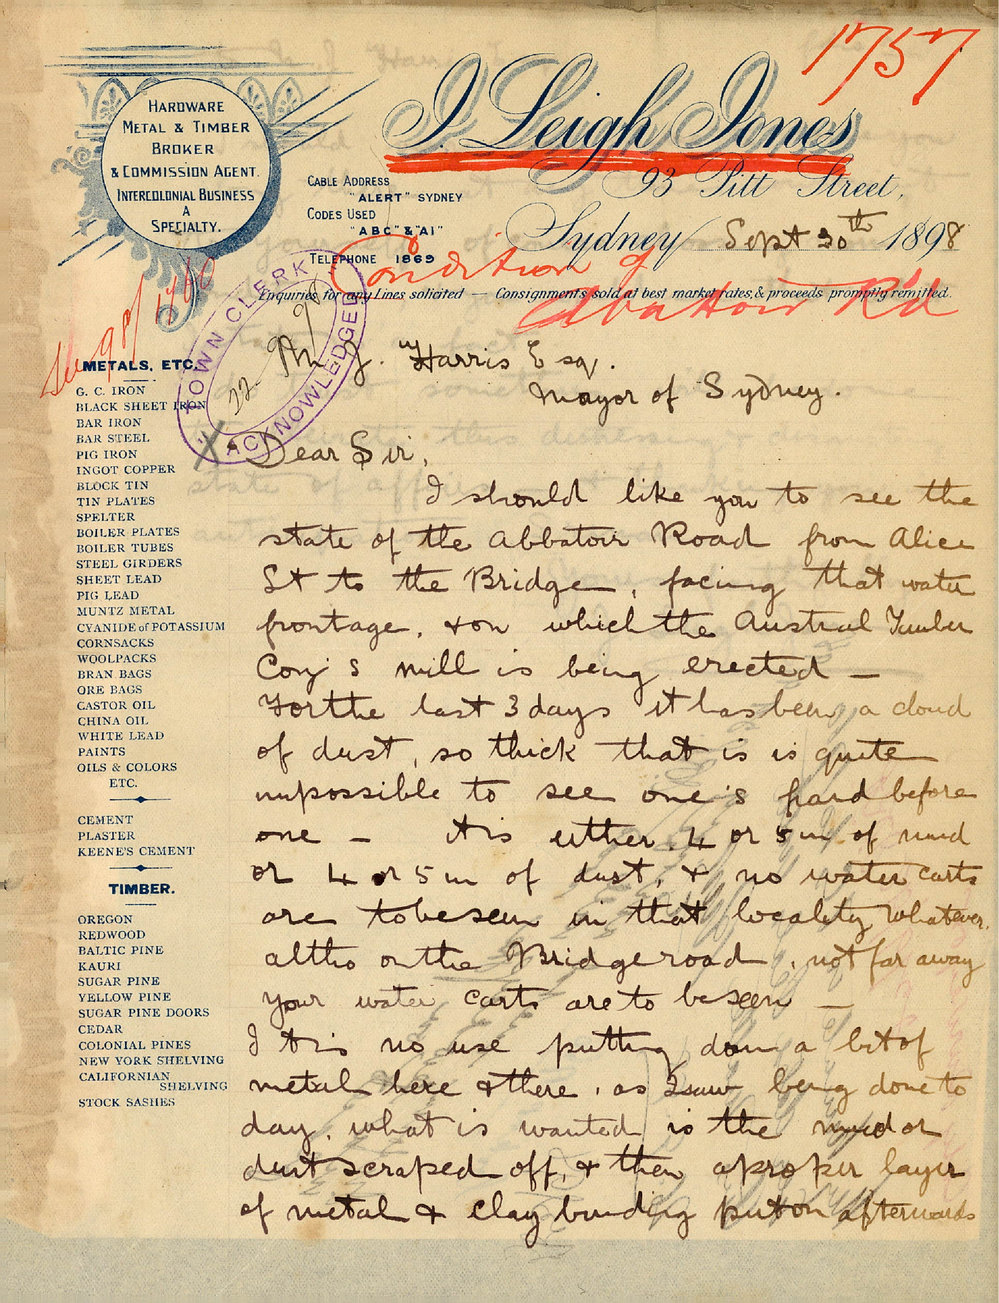 1757
HARDWARE
METAL & TIMBER
BROKER
& COMMISSION AGENT.
INTERCOLONIAL BUSINESS
A
SPECIALTY.
J. Leigh Jones
93 Pitt Street,
Sydney Sept 20th 1898
CABLE ADDRESS
"ALERT" SYDNEY
CODES USED
"ABC" & "A1"
TELEPHONE 1869
Condition of
Abattoir Rd
Enquiries for any Lines solicited — Consignments sold at best market rates, & proceeds promptly remitted.
TOWN CLERK
22 9 98
ACKNOWLEDGED
M J. Harris Esq.
Mayor of Sydney.
Dear Sir,
I should like you to see the
state of the Abbatoir Road from Alice
St to the Bridge, facing that water
frontage, & on which the Austral Timber
Coy's mill is being erected —
For the last 3 days it has been a cloud
of dust, so thick that is is quite
impossible to see one's hand before
one — It is either 4 or 5 in of mud
or 4 or 5 in of dust, & no water carts
are to be seen in that locality whatever.
altho on the Bridge road, not far away
your water carts are to be seen —
It is no use putting down a bit of
metal here & there, as I saw being done to
day, what is wanted is the mud or
dust scraped off, & then a proper layer
of metal & clay binding put on afterwards
METALS, ETC.
G. C. IRON
BLACK SHEET IRON
BAR IRON
BAR STEEL
PIG IRON
INGOT COPPER
BLOCK TIN
TIN PLATES
SPELTER
BOILER PLATES
BOILER TUBES
STEEL GIRDERS
SHEET LEAD
PIG LEAD
MUNTZ METAL
CYANIDE of POTASSIUM
CORNSACKS
WOOLPACKS
BRAN BAGS
ORE BAGS
CASTOR OIL
CHINA OIL
WHITE LEAD
PAINTS
OILS & COLORS
ETC.
CEMENT
PLASTER
KEENE'S CEMENT
TIMBER.
OREGON
REDWOOD
BALTIC PINE
KAURI
SUGAR PINE
YELLOW PINE
SUGAR PINE DOORS
CEDAR
COLONIAL PINES
NEW YORK SHELVING
CALIFORNIAN
SHELVING
STOCK SASHES